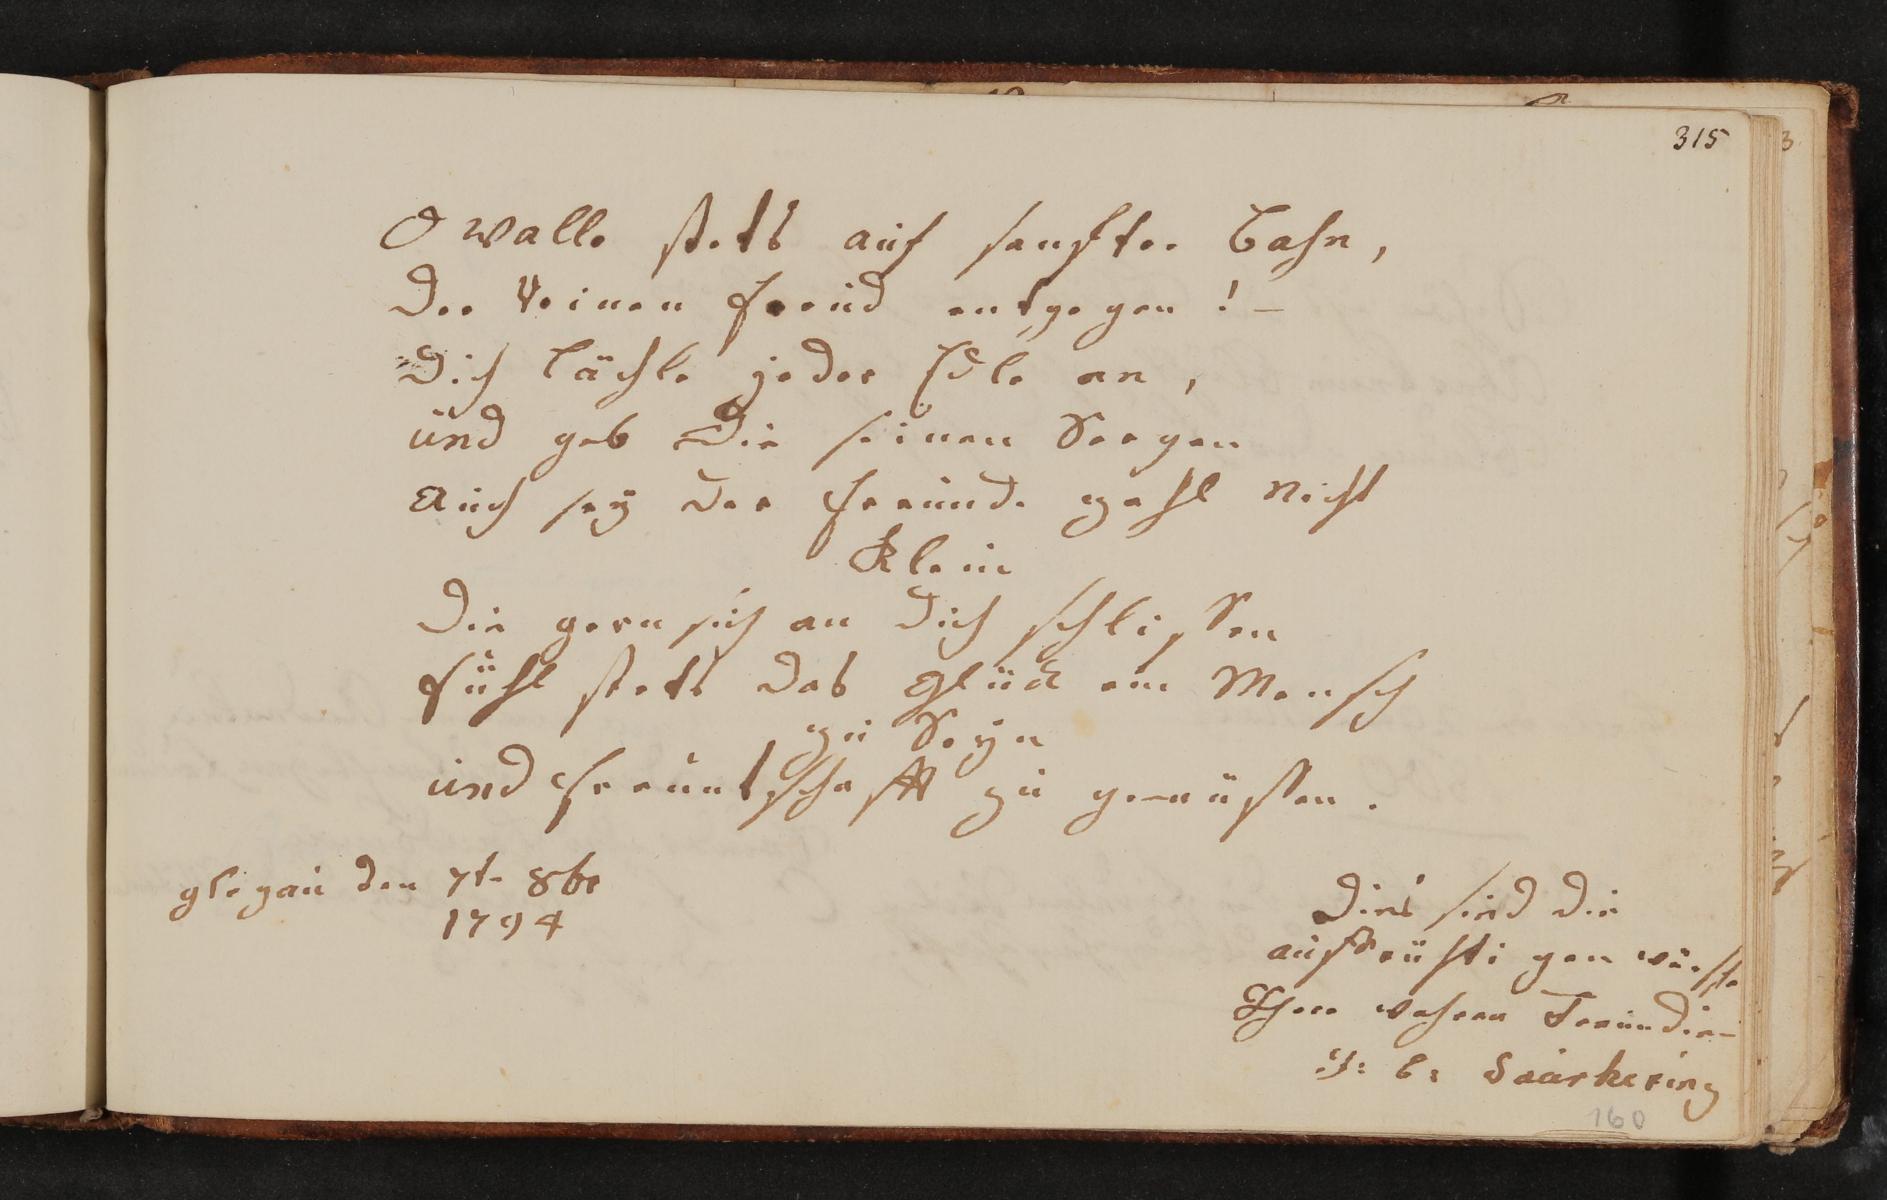 315
O walle stets auf sanfter bahn,
Der keinen freud entgegen! –
Dich lächle jeder Edle an,
und geb Dir seinen Seegen
Auch sey der freunde zahl nicht
Klein
Die gern sich an dich schlissen
fühl stets das Glück ein Mensch
zu Seyn
und freuntschafft zu genüssen.
glogau den 7t. 8br
1794
Dies sind die
aufrüchtigen wünsche
Ihrer wahren Freundin
E: Sauerkering
160